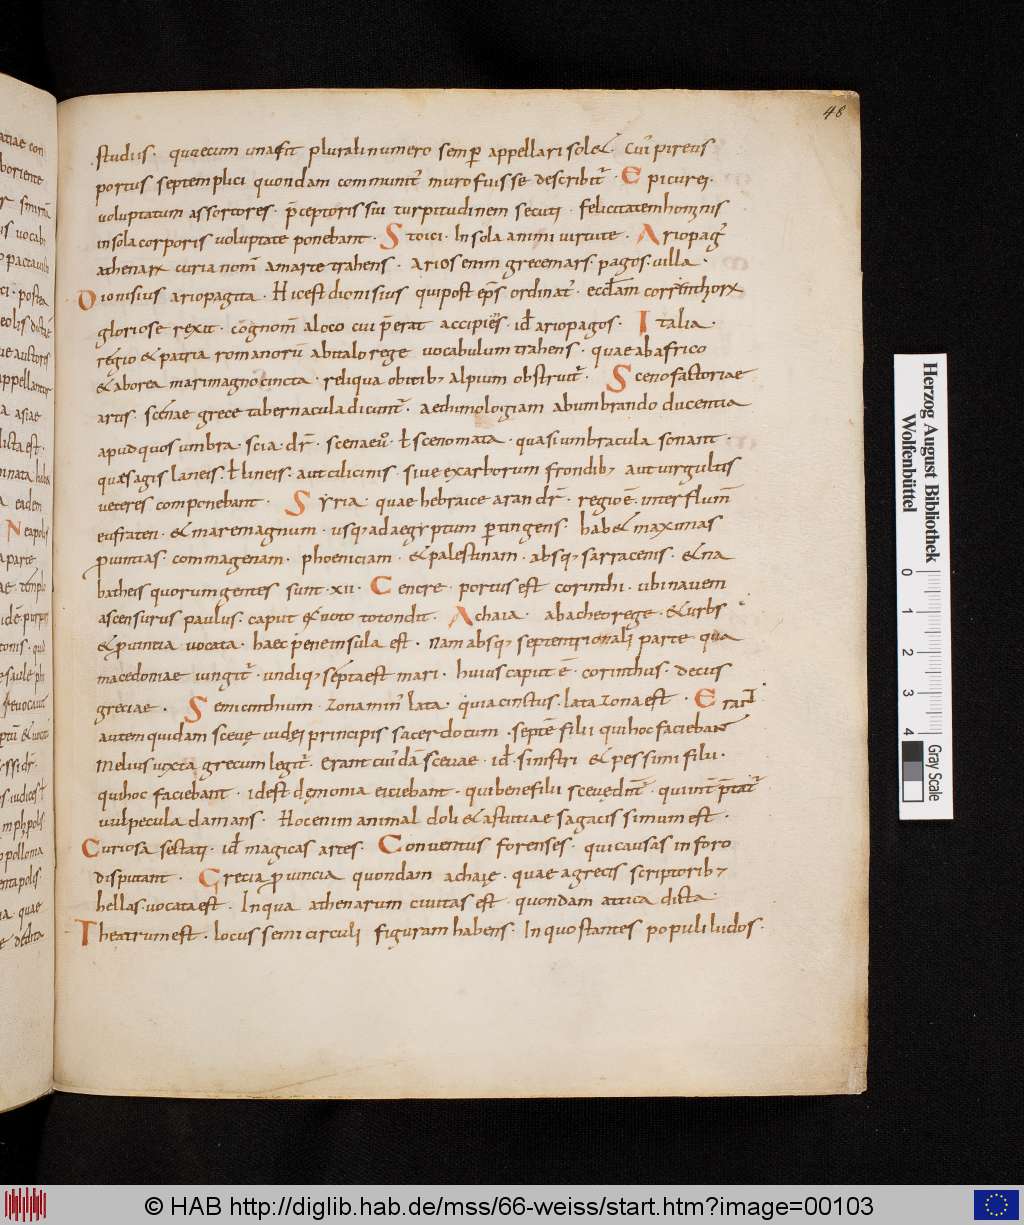 48
studiis. quaecum una sit plurali numero semp appellari solet. Cui pireus
portus septemplici quondam communit muro fuisse describit. Epicurei.
voluptatum assortores. pceptoris sui turpitudinem secuti. felicitatem hominis
in sola corporis voluptate ponebant. Stoici. In sola animi virtute. Ariopag
athenarx curia nom a marte trahens. Arios enim grece mars. pagos. villa.
Dionisius ariopagita. Hic est dionisius qui post eps ordinat. ecclam corrinthiorx
gloriose rexit. cognom a loco cui perat accipiens. id ariopagos. Italia.
regio et patria romanoru ab italo rege vocabulum trahens. quae ab africo
et a borea mari magno cincta. reliqua obitib; alpium obstruit. Scenofactoriae
artis. scenae grece tabernacula dicunt. aethimoloigiam abumbrando ducentia
apud quos umbra. scia. dr. scenaeu. t scenomata. quasi umbracula sonant.
quae sagis laneis. t lineis. aut cilicinis. sive ex arborum frondib; aut virgultis
veteres componebant. Syria. quae hebraice aran dr. regio e. inter flum
eufraten. et mare magnum. usq; ad aegyptum ptingens. habet maximas
puintias. commagenam. phoeniciam. et palestinam. absq; sarracenis. et na
batheis quorum gentes sunt. xii. Cencre. portus est corinthi. ubi navem
ascensurus paulus. caput ex voto totondit. Achaia. ab acheo rege. et urbs
et puintia vocata. haec pene insula est. nam absq; septentrionali parte qua
macedoniae iungit. undiq; septa est mari. huius caput e. corinthus. decus
greciae. Semicinthium. zona min lata. quia cinctus. lata zona est. Erant
autem quidam scevę iudęi principis sacerdotum. septe filii qui hoc faciebant
Melius iuxta grecum legit. Erant cui da scevae. id. sinistri et pessimi filii.
qui hoc faciebant. id est dęmonia eiciebant. qui bene filii scevę dnt. qui int ptat
vulpecula damans. Hoc enim animal doli et astutiae sagacissimum est.
Curiosa sectati. id magicas artes. Conventus forenses. qui causas in foro
disputant. Grecia puincia quondam achaię. quae a grecis scriptorib;
hellas. vocata est. In qua athenarum civitas est. quondam attica dicta.
Theatrum est. locus semicirculi figuram habens. In quo stantes populi ludos.
Herzog August Bibliothek
Wolfenbüttel
0 1 2 3 4
Gray Scale
© HAB http://diglib.hab.de/mss/66-weiss/start.htm?image=00103